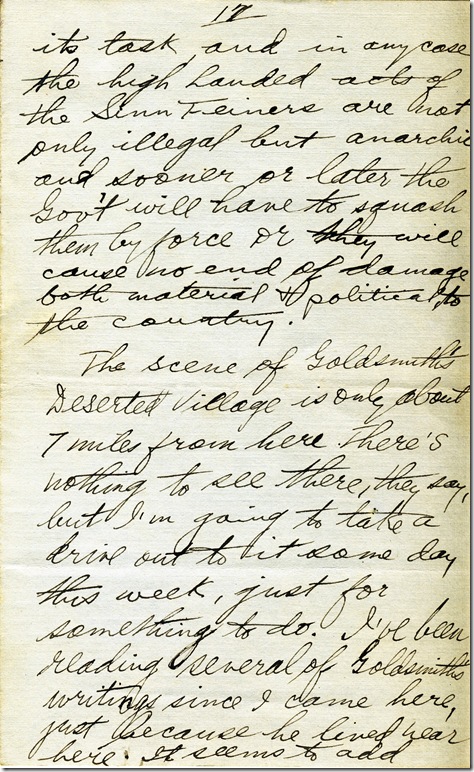 17
its task, and in any case
the high handed acts of
the Sinn Feiners are not
only illegal but anarchic
and sooner or later the
Gov't will have to squash
them by force or they will
cause no end of damage
both material & political, to
the country.
The scene of Goldsmith's
Deserted Village is only about
7 miles from here There's
nothing to see there, they say,
but I'm going to take a
drive out to it some day
this week, just for
something to do. I've been
reading several of Goldsmith's
writings since I came here,
just because he lived near
here. It seems to add